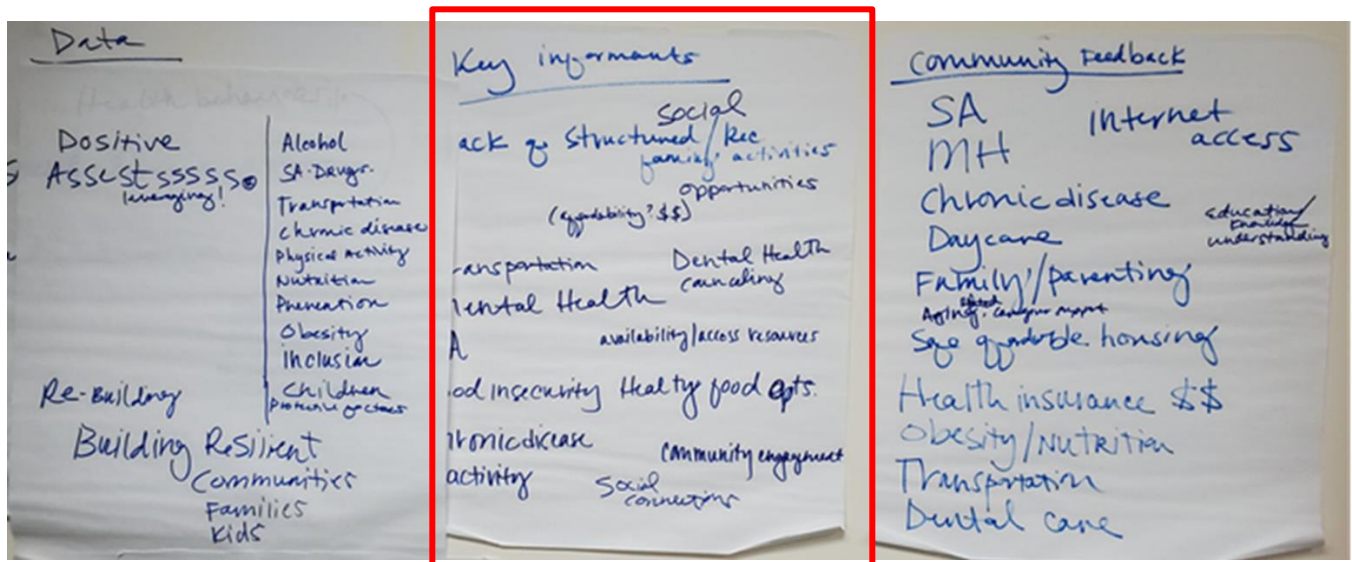 Data
Positive
Assestsssss.
leveraging!
Alcohol
SA-Drugs.
Transportation
chronic disease
Physical Activity
Nutrition
Prevention
Obesity
Inclusion
Children
Protective factors
Re-Building
Building Resilient
Communities
Families
Kids
Key informants
social
ack of structured/Rec
family activities
opportunities
(affordability? $$)
ransportation
Dental Health
counceling
ental Health
availability/access resources
A
od insecurity Healty food opts.
hronic disease
community engagement
activity
Social
connections
Community Feedback
SA
internet
access
MH
Chronic disease
education/
knowledge
understanding
Daycare
Family/parenting
Aging caregiver support
Safe affordable housing
Health insurance $$
Obesity/Nutrition
Transportation
Dental care